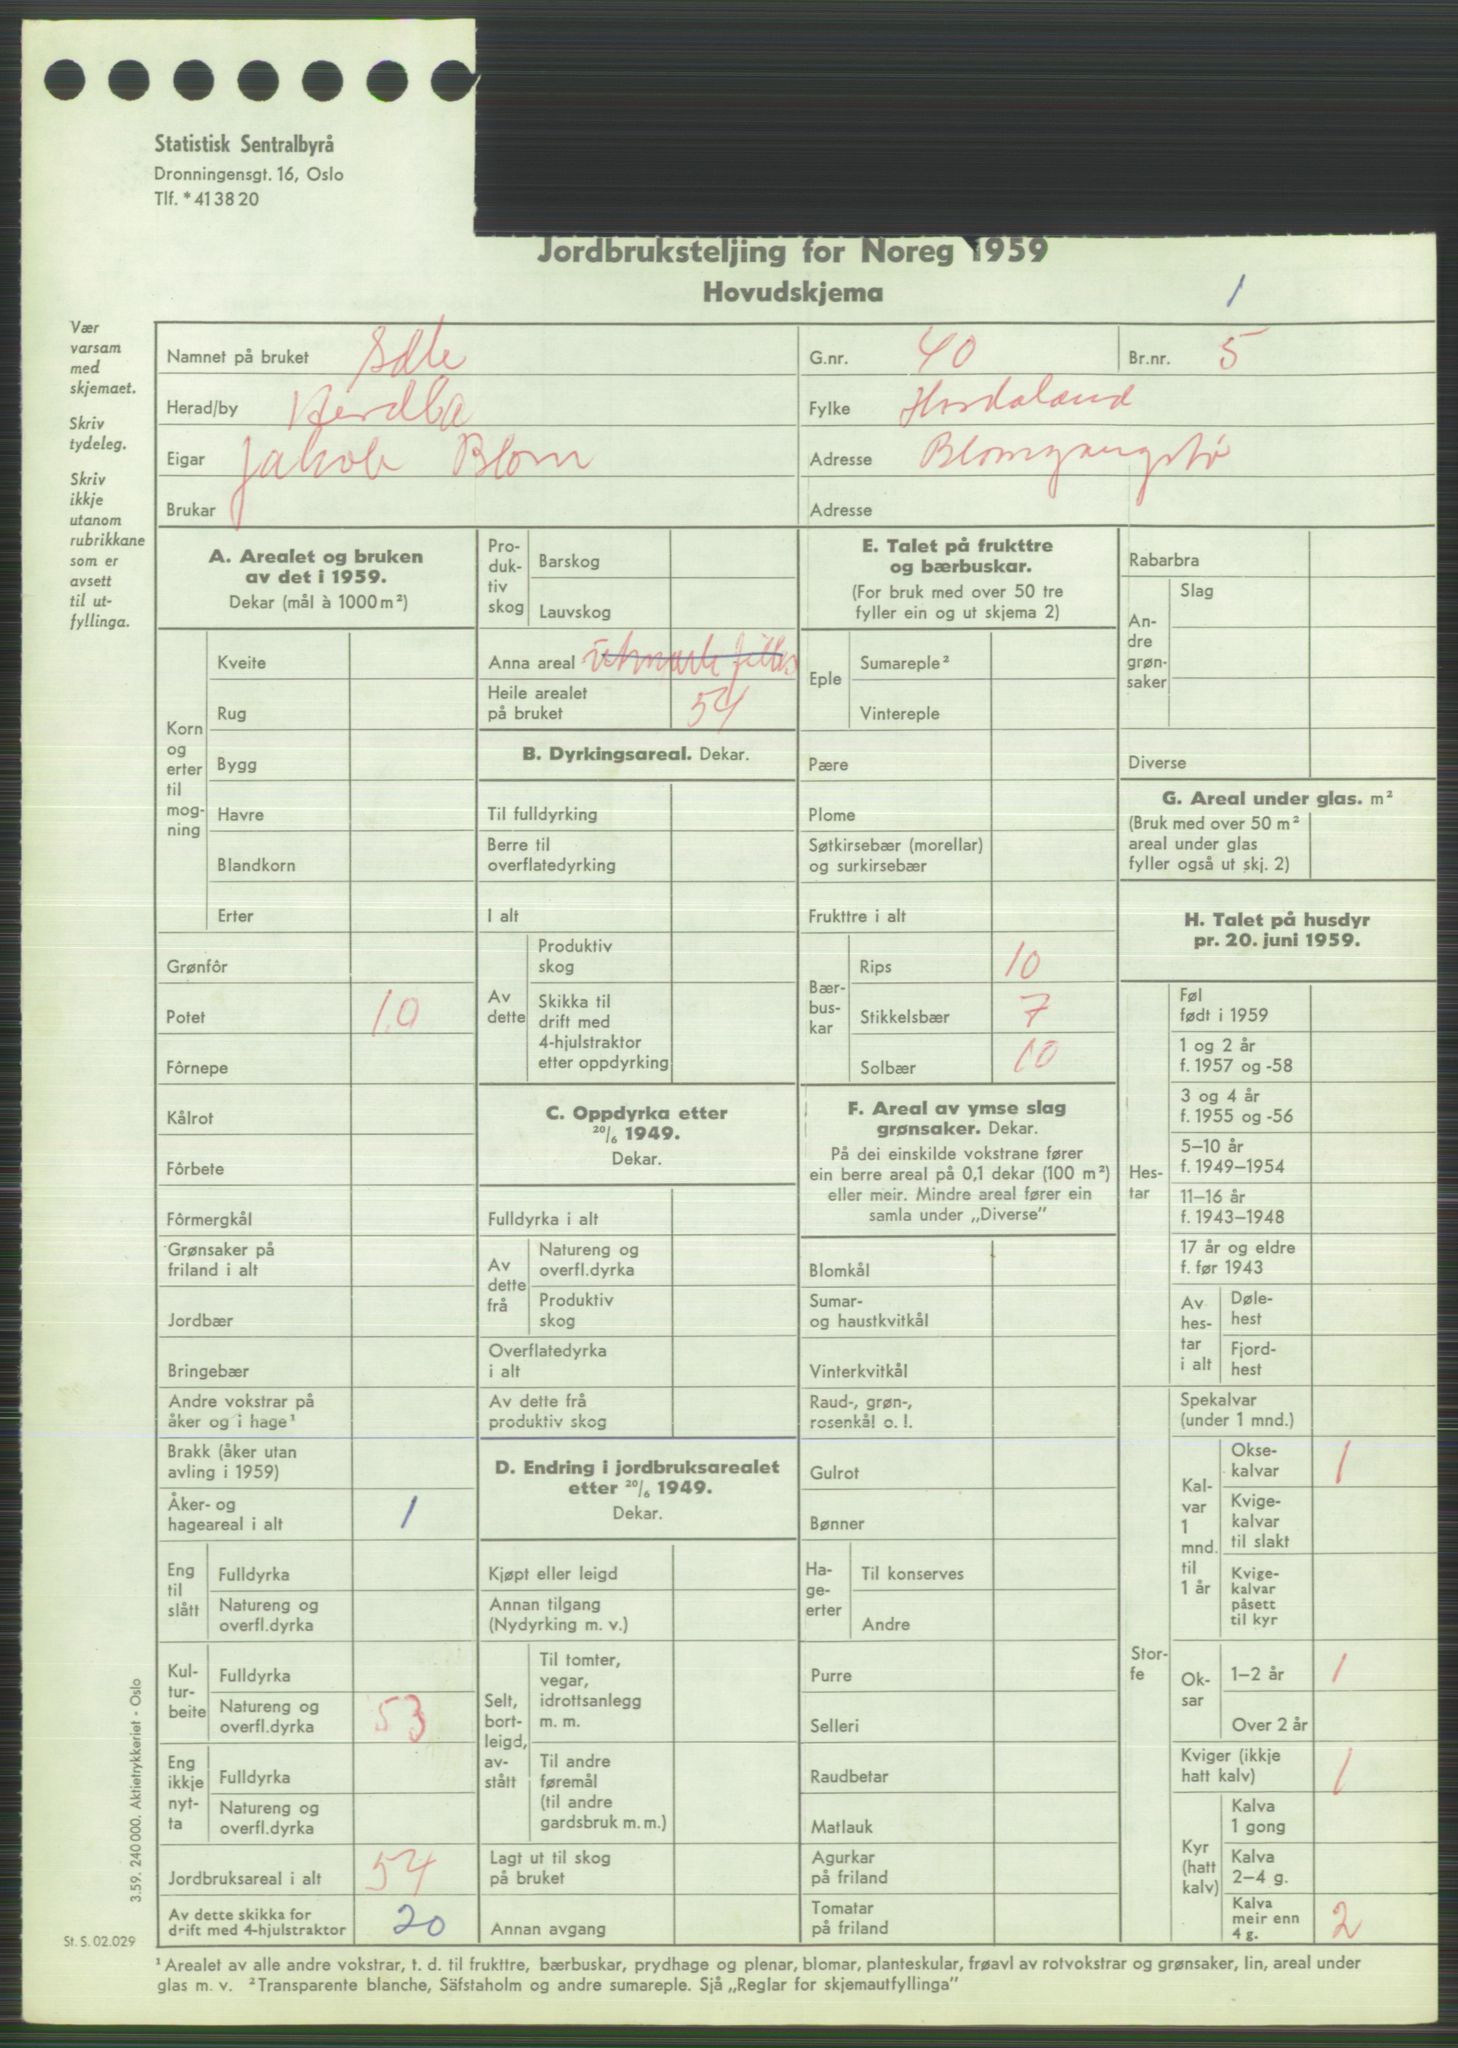 Statistisk Sentralbyrå
Dronningensgt. 16, Oslo
Tlf. * 41 38 20
Jordbruksteljing for Noreg 1959
Hovudskjema
1
Vær
varsam
med
skjemaet.
Skriv
tydeleg.
Skriv
ikkje
utanom
rubrikkane
som er
avsett
til ut-
fyllinga.
Namnet på bruket
G.nr. 40 Br.nr. 5
Herad/by Herdla
Fylke Hordaland
Eigar Jakob Blom
Adresse
Brukar
Adresse
A. Arealet og bruken
av det i 1959.
Dekar (mål à 1000 m²)
Korn
og
erter
til
mog-
ning
Kveite
Rug
Bygg
Havre
Blandkorn
Erter
Grønfôr
Potet 1.0
Fôrnepe
Kålrot
Fôrbete
Fôrmergkål
Grønsaker på
friland i alt
Jordbær
Bringebær
Andre vokstrar på
åker og i hage¹
Brakk (åker utan
avling i 1959)
Åker- og
hageareal i alt 1
Eng
til
slått
Fulldyrka
Natureng og
overfl.dyrka
Kul-
tur-
beite
Fulldyrka
Natureng og
overfl.dyrka 53
Eng
ikkje
nyt-
ta
Fulldyrka
Natureng og
overfl.dyrka
Jordbruksareal i alt 54
Av dette skikka for
drift med 4-hjulstraktor 20
Pro-
duk-
tiv
skog
Barskog
Lauvskog
Anna areal utmark felles
Heile arealet
på bruket 54
B. Dyrkingsareal. Dekar.
Til fulldyrking
Berre til
overflatedyrking
I alt
Av
dette
Produktiv
skog
Skikka til
drift med
4-hjulstraktor
etter oppdyrking
C. Oppdyrka etter
20/6 1949.
Dekar.
Fulldyrka i alt
Av
dette
frå
Natureng og
overfl.dyrka
Produktiv
skog
Overflatedyrka
i alt
Av dette frå
produktiv skog
D. Endring i jordbruksarealet
etter 20/6 1949.
Dekar.
Kjøpt eller leigd
Annan tilgang
(Nydyrking m. v.)
Selt,
bort-
leigd,
av-
stått
Til tomter,
vegar,
idrottsanlegg
m. m.
Til andre
føremål
(til andre
gardsbruk m. m.)
Lagt ut til skog
på bruket
Annan avgang
E. Talet på frukttre
og bærbuskar.
(For bruk med over 50 tre
fyller ein og ut skjema 2)
Eple
Sumareple²
Vintereple
Pære
Plome
Søtkirsebær (morellar)
og surkirsebær
Frukttre i alt
Bær-
bus-
kar
Rips 10
Stikkelsbær 7
Solbær 10
F. Areal av ymse slag
grønsaker. Dekar.
På dei einskilde vokstrane fører
ein berre areal på 0,1 dekar (100 m²)
eller meir. Mindre areal fører ein
samla under „Diverse”
Blomkål
Sumar-
og haustkvitkål
Vinterkvitkål
Raud-, grøn-,
rosenkål o. l.
Gulrot
Bønner
Ha-
ge-
erter
Til konserves
Andre
Purre
Selleri
Raudbetar
Matlauk
Agurkar
på friland
Tomatar
på friland
Rabarbra
An-
dre
grøn-
saker
Slag
Diverse
G. Areal under glas. m²
(Bruk med over 50 m²
areal under glas
fyller også ut skj. 2)
H. Talet på husdyr
pr. 20. juni 1959.
Hes-
tar
Føl
født i 1959
1 og 2 år
f. 1957 og -58
3 og 4 år
f. 1955 og -56
5–10 år
f. 1949–1954
11–16 år
f. 1943–1948
17 år og eldre
f. før 1943
Av
hes-
tar
i alt
Døle-
hest
Fjord-
hest
Stor-
fe
Spekalvar
(under 1 mnd.)
Kal-
var
1
mnd.
til
1 år
Okse-
kalvar 1
Kvige-
kalvar
til slakt
Kvige-
kalvar
påsett
til kyr
Ok-
sar
1–2 år 1
Over 2 år
Kviger (ikkje
hatt kalv) 1
Kyr
(hatt
kalv)
Kalva
1 gong
Kalva
2–4 g.
Kalva
meir enn
4 g. 2
3.59. 240 000. Aktietrykkeriet - Oslo
St. S. 02.029
¹ Arealet av alle andre vokstrar, t. d. til frukttre, bærbuskar, prydhage og plenar, blomar, planteskular, frøavl av rotvokstrar og grønsaker, lin, areal under
glas m. v. ² Transparente blanche, Säfstaholm og andre sumareple. Sjå „Reglar for skjemautfyllinga”